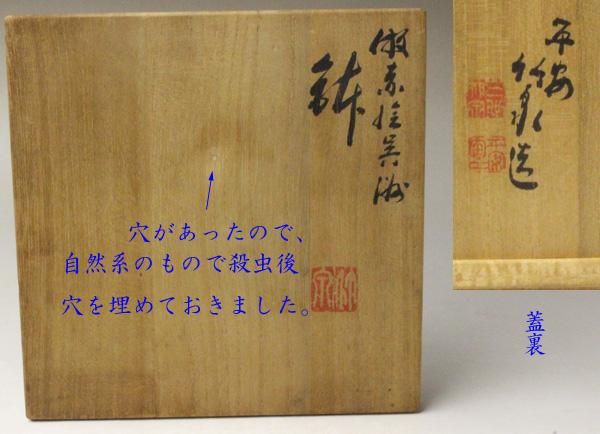 倣赤絵呉洲
鉢
穴があったので、
自然系のもので殺虫後
穴を埋めておきました。
平安
造
蓋裏